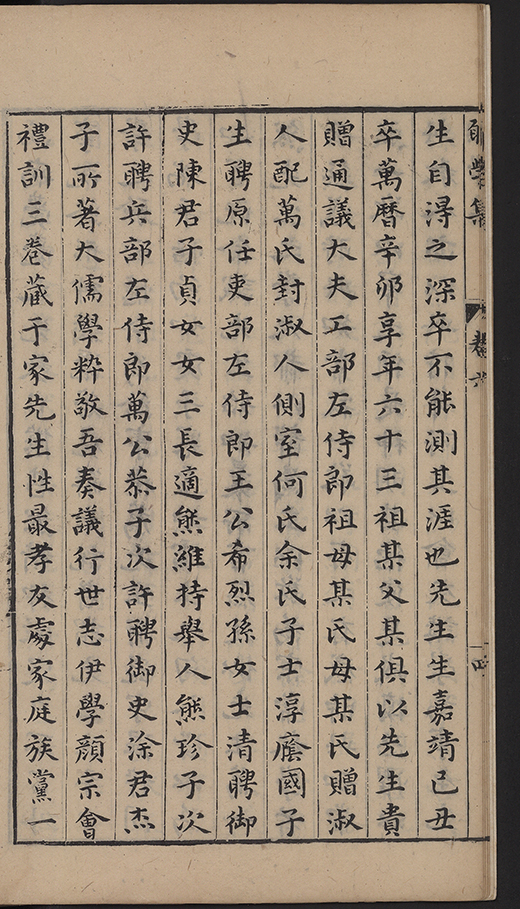 學集
卷六
生自淂之深卒不能測其涯也先生生嘉靖己丑
卒萬曆辛夘享年六十三祖某父某俱以先生貴
贈通議大夫工部左侍郎祖母某氏母某氏贈淑
人配萬氏封淑人側室何氏余氏子士淳廕國子
生聘原任吏部左侍郎王公希烈孫女士清聘御
史陳君子貞女女三長適熊維持舉人熊珍子次
許聘兵部左侍郎萬公恭子次許聘御史涂君杰
子所著大儒學粹敬吾奏議行世志伊學顏宗會
禮訓三卷藏于家先生性最孝友處家庭族黨一